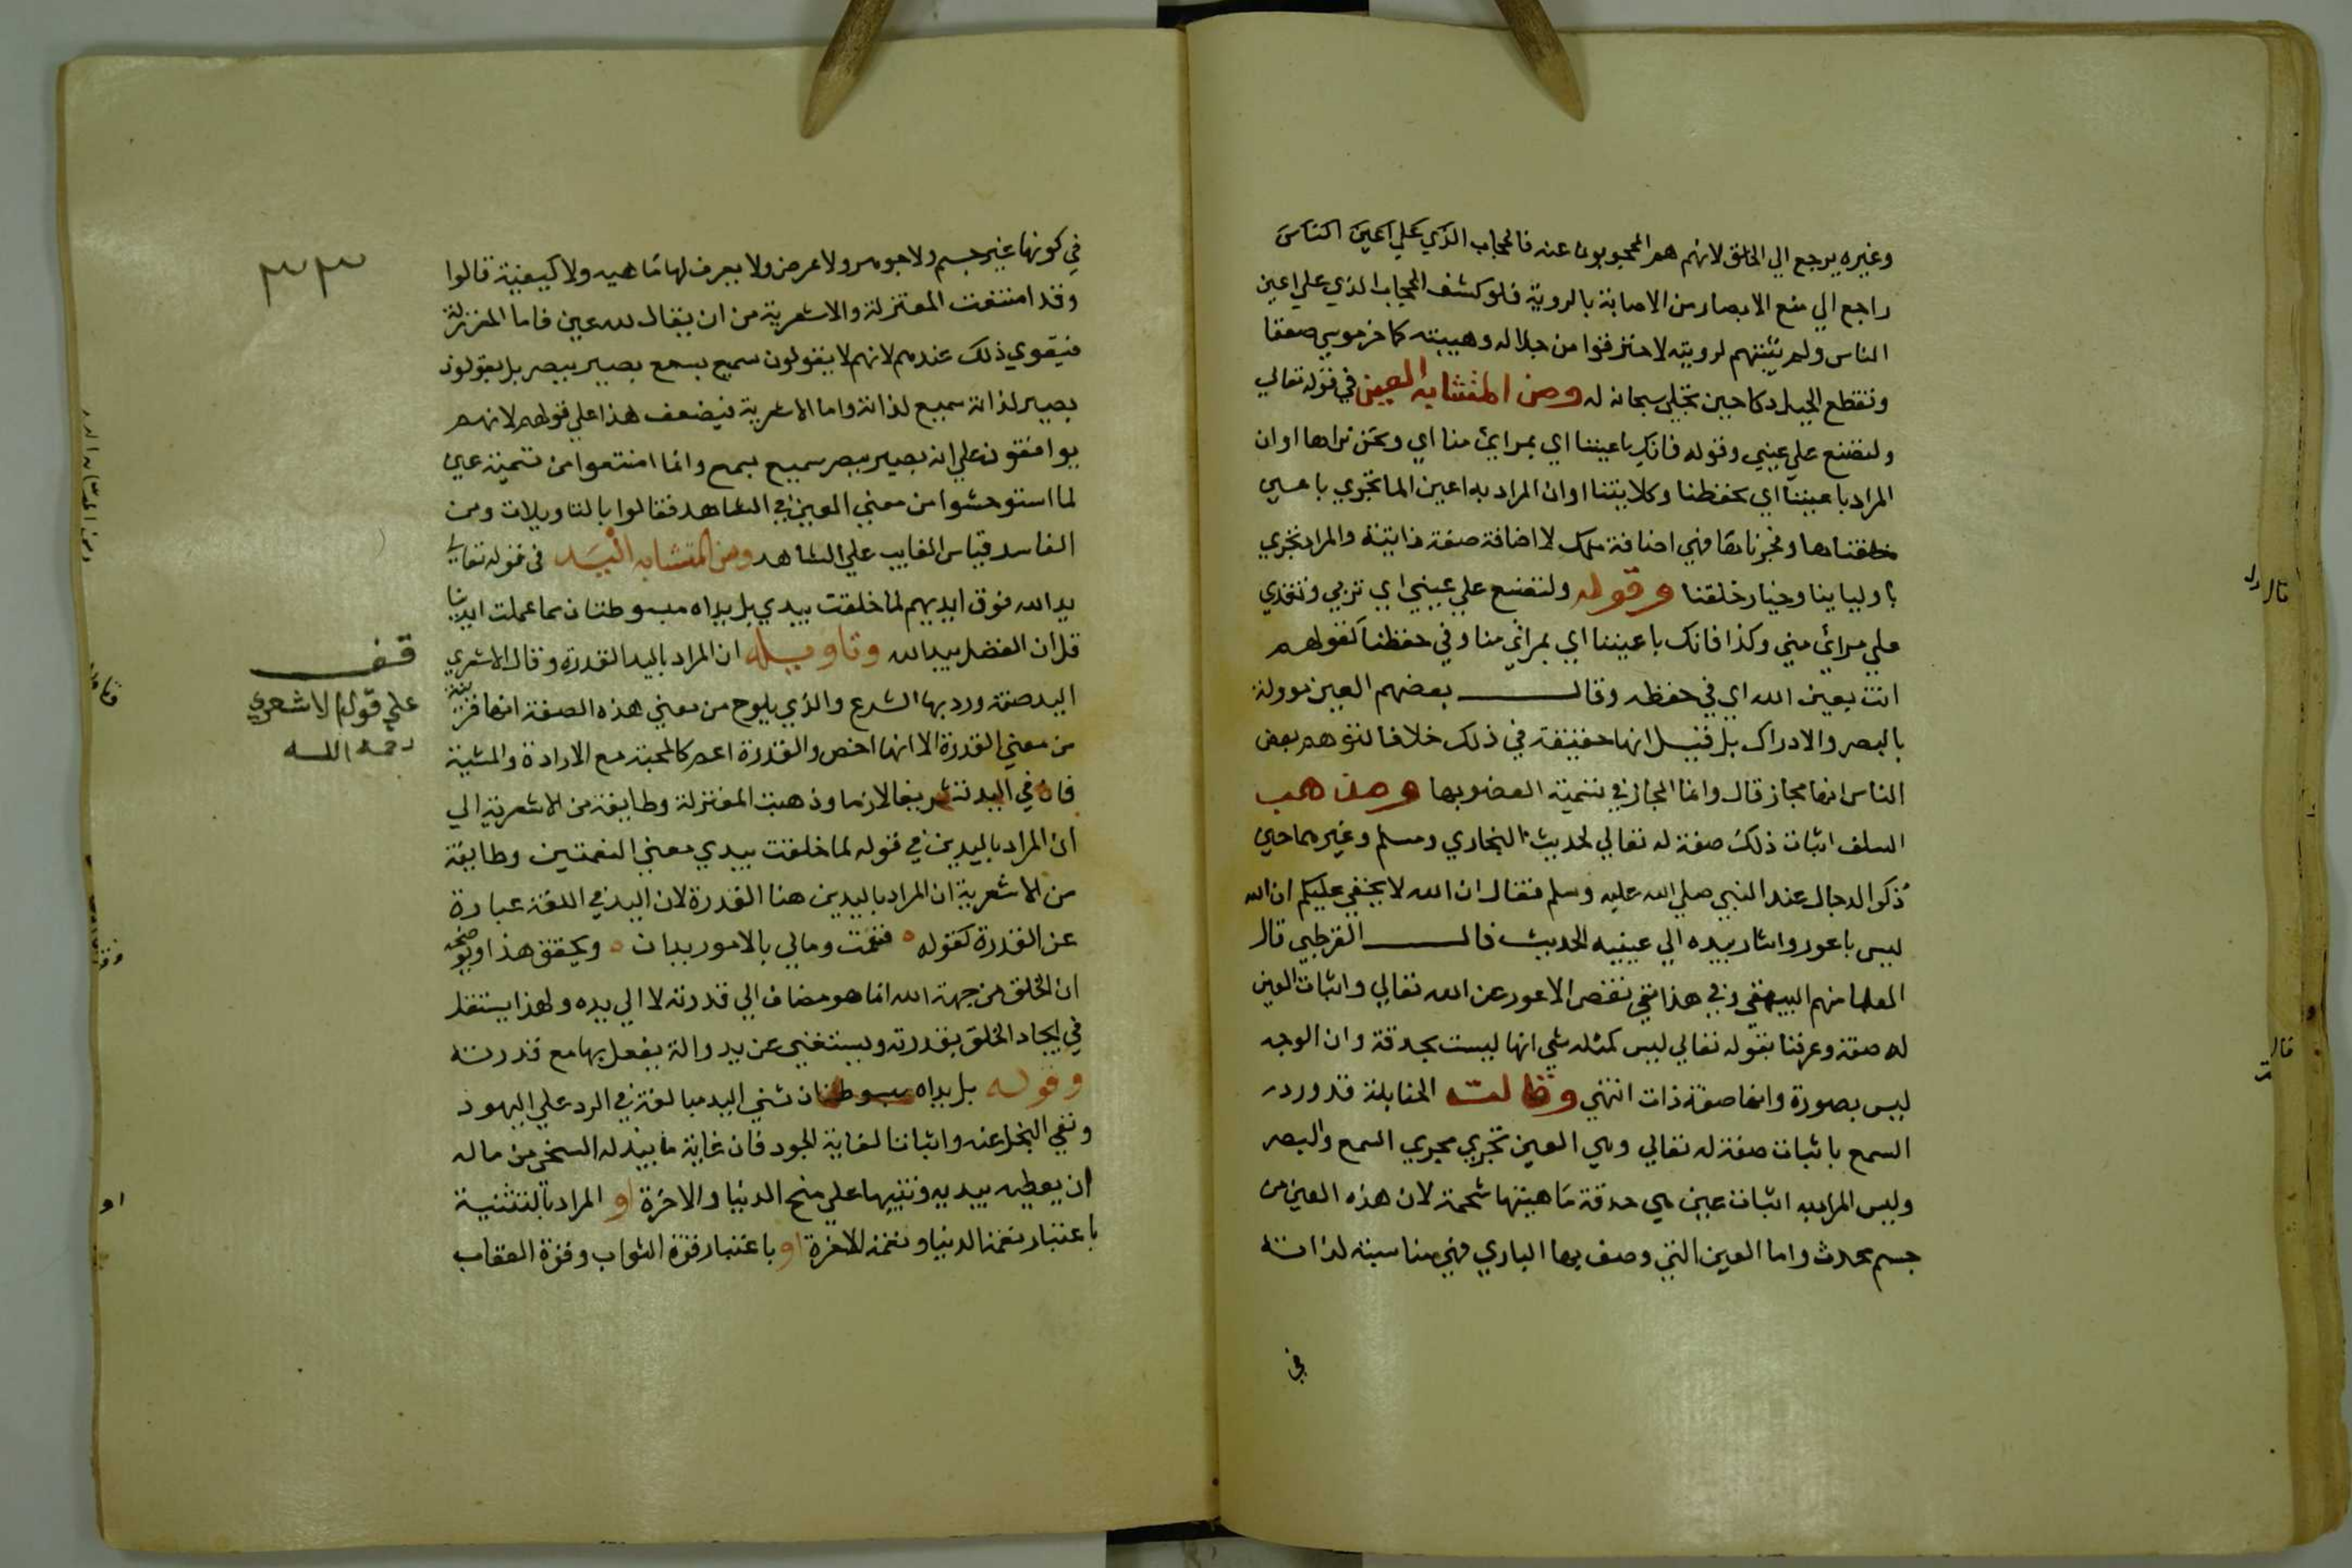 وغيره يرجع الي الخلق لانهم هم المحجوبون عنه فالحجاب الذي علي اعين الناس
راجع الي منع الابصار من الاصابة بالروية فلو كشف الحجاب الذي علي اعين
الناس ولم يثبتهم لرويته لاحترقوا من جلاله وهيبته كما خر موسي صعقا
وتقطع الجبل دكا حين تجلي سبحانه له ومن المتشابه العين في قوله تعالي
ولتصنع علي عيني وقوله فانك باعيننا اي بمرايئ منا اي ونحن نراها او ان
المراد باعيننا اي بحفظنا وكلايتنا او ان المراد به اعين الما تجري باعين
خلقناها وفجرناها فهي اضافة ملك لا اضافة صفة ذاتية والمراد تجري
باوليائنا وخيار خلقنا وقوله ولتصنع علي عيني اي تربي وتغذي
علي مرائ مني وكذا فانك باعيننا اي بمرائي منا وفي حفظنا كقولهم
انت بعين الله اي في حفظه وقال بعضهم العين موولة
بالبصر والادراك بل قيل انها حقيقة في ذلك خلافا لتوهم بعض
الناس انها مجاز قال وانما المجاز في تسمية العضو بها ومذهب
السلف اثبات ذلك صفة له تعالي لحديث البخاري ومسلم وغيرهما حين
ذكر الدجال عند النبي صلي الله عليه وسلم فقال ان الله لا يخفي عليكم ان الله
ليس باعور واشار بيده الي عينيه الحديث قال القرطبي قال
العلما منهم البيهقي وفي هذا نفي نقص الاعور عن الله تعالي واثبات العين
له صفة وعرفنا بقوله تعالي ليس كمثله شي انها ليست بحدقة وان الوجه
ليس بصورة وانها صفة ذات انتهي وقالت الحنابلة قد ورد
السمع باثبات صفة له تعالي وهي العين تجري مجري السمع والبصر
وليس المراد به اثبات عين هي حدقة ماهيتها شحمة لان هذه العين من
جسم محدث واما العين التي وصف بها الباري فهي مناسبة لذاته
في
٣٣
في كونها غير جسم ولا جوهر ولا عرض ولا يعرف لها ماهيه ولا كيفية قالوا
وقد امتنعت المعتزلة والاشعرية من ان يقال لله عين فاما المعتزلة
فيقوي ذلك عندهم لانهم لا يقولون سميع بسمع بصير ببصر بل يقولون
بصير لذاته سميع لذاته واما الاشعرية فيضعف هذا علي قولهم لانهم
يوافقون علي انه بصير ببصر سميع بسمع وانما امتنعوا من تسمية عين
لما استوحشوا من معني العين في الشاهد فقالوا بالتاويلات ومن
الفاسد قياس الغايب علي الشاهد ومن المتشابه اليد في قوله تعالي
يد الله فوق ايديهم لما خلقت بيدي بل يداه مبسوطتان مما عملت ايدينا
قل ان الفضل بيد الله وتاويله ان المراد باليد القدرة وقال الاشعري
اليد صفة ورد بها الشرع والذي يلوح من معني هذه الصفة انها قريبة
من معني القدرة الا انها اخص والقدرة اعم كالمحبة مع الارادة والمشية
فان في اليد تشريفا لازما وذهبت المعتزلة وطايفة من الاشعرية الي
ان المراد باليدين في قوله لما خلقت بيدي معني النعمتين وطايفة
من الاشعرية ان المراد باليدين هنا القدرة لان اليد في اللغة عبارة
عن القدرة كقوله فقمت ومالي بالامور يدان ويحقق هذا ويوضحه
ان الخلق من جهة الله انما هو مضاف الي قدرته لا الي يده ولهذا يستقل
في ايجاد الخلق بقدرته ويستغني عن يد والة يفعل بها مع قدرته
وقوله بل يداه مبسوطتان ثني اليد مبالغة في الرد علي اليهود
ونفي البخل عنه واثباتا لغاية الجود فان غاية ما يبذله السخي من ماله
ان يعطيه بيديه وتنبيها علي منح الدنيا والاخرة او المراد بالتثنية
باعتبار نعمة الدنيا ونعمة الاخرة او باعتبار قوة الثواب وقوة العقاب
قف
علي قول الاشعري
رحمه الله